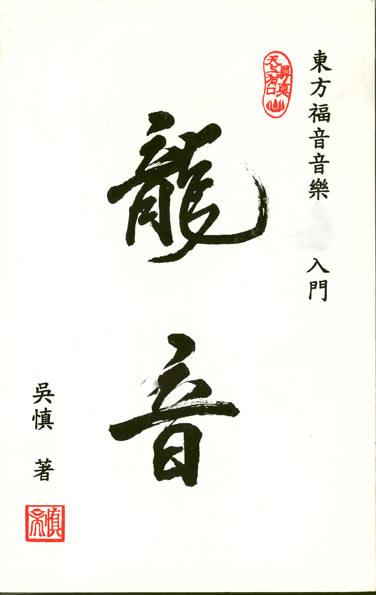 東方福音音樂 入門
龍音
吳慎 著